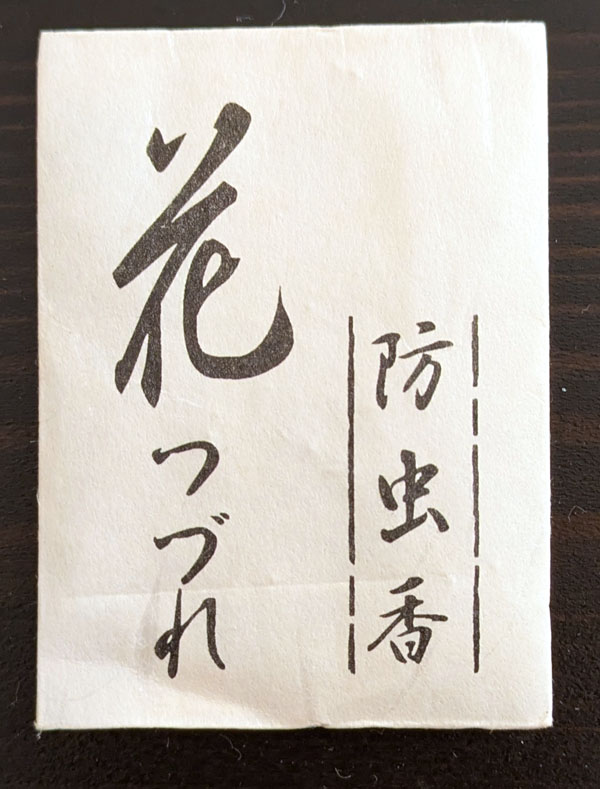 防虫香
花つづれ